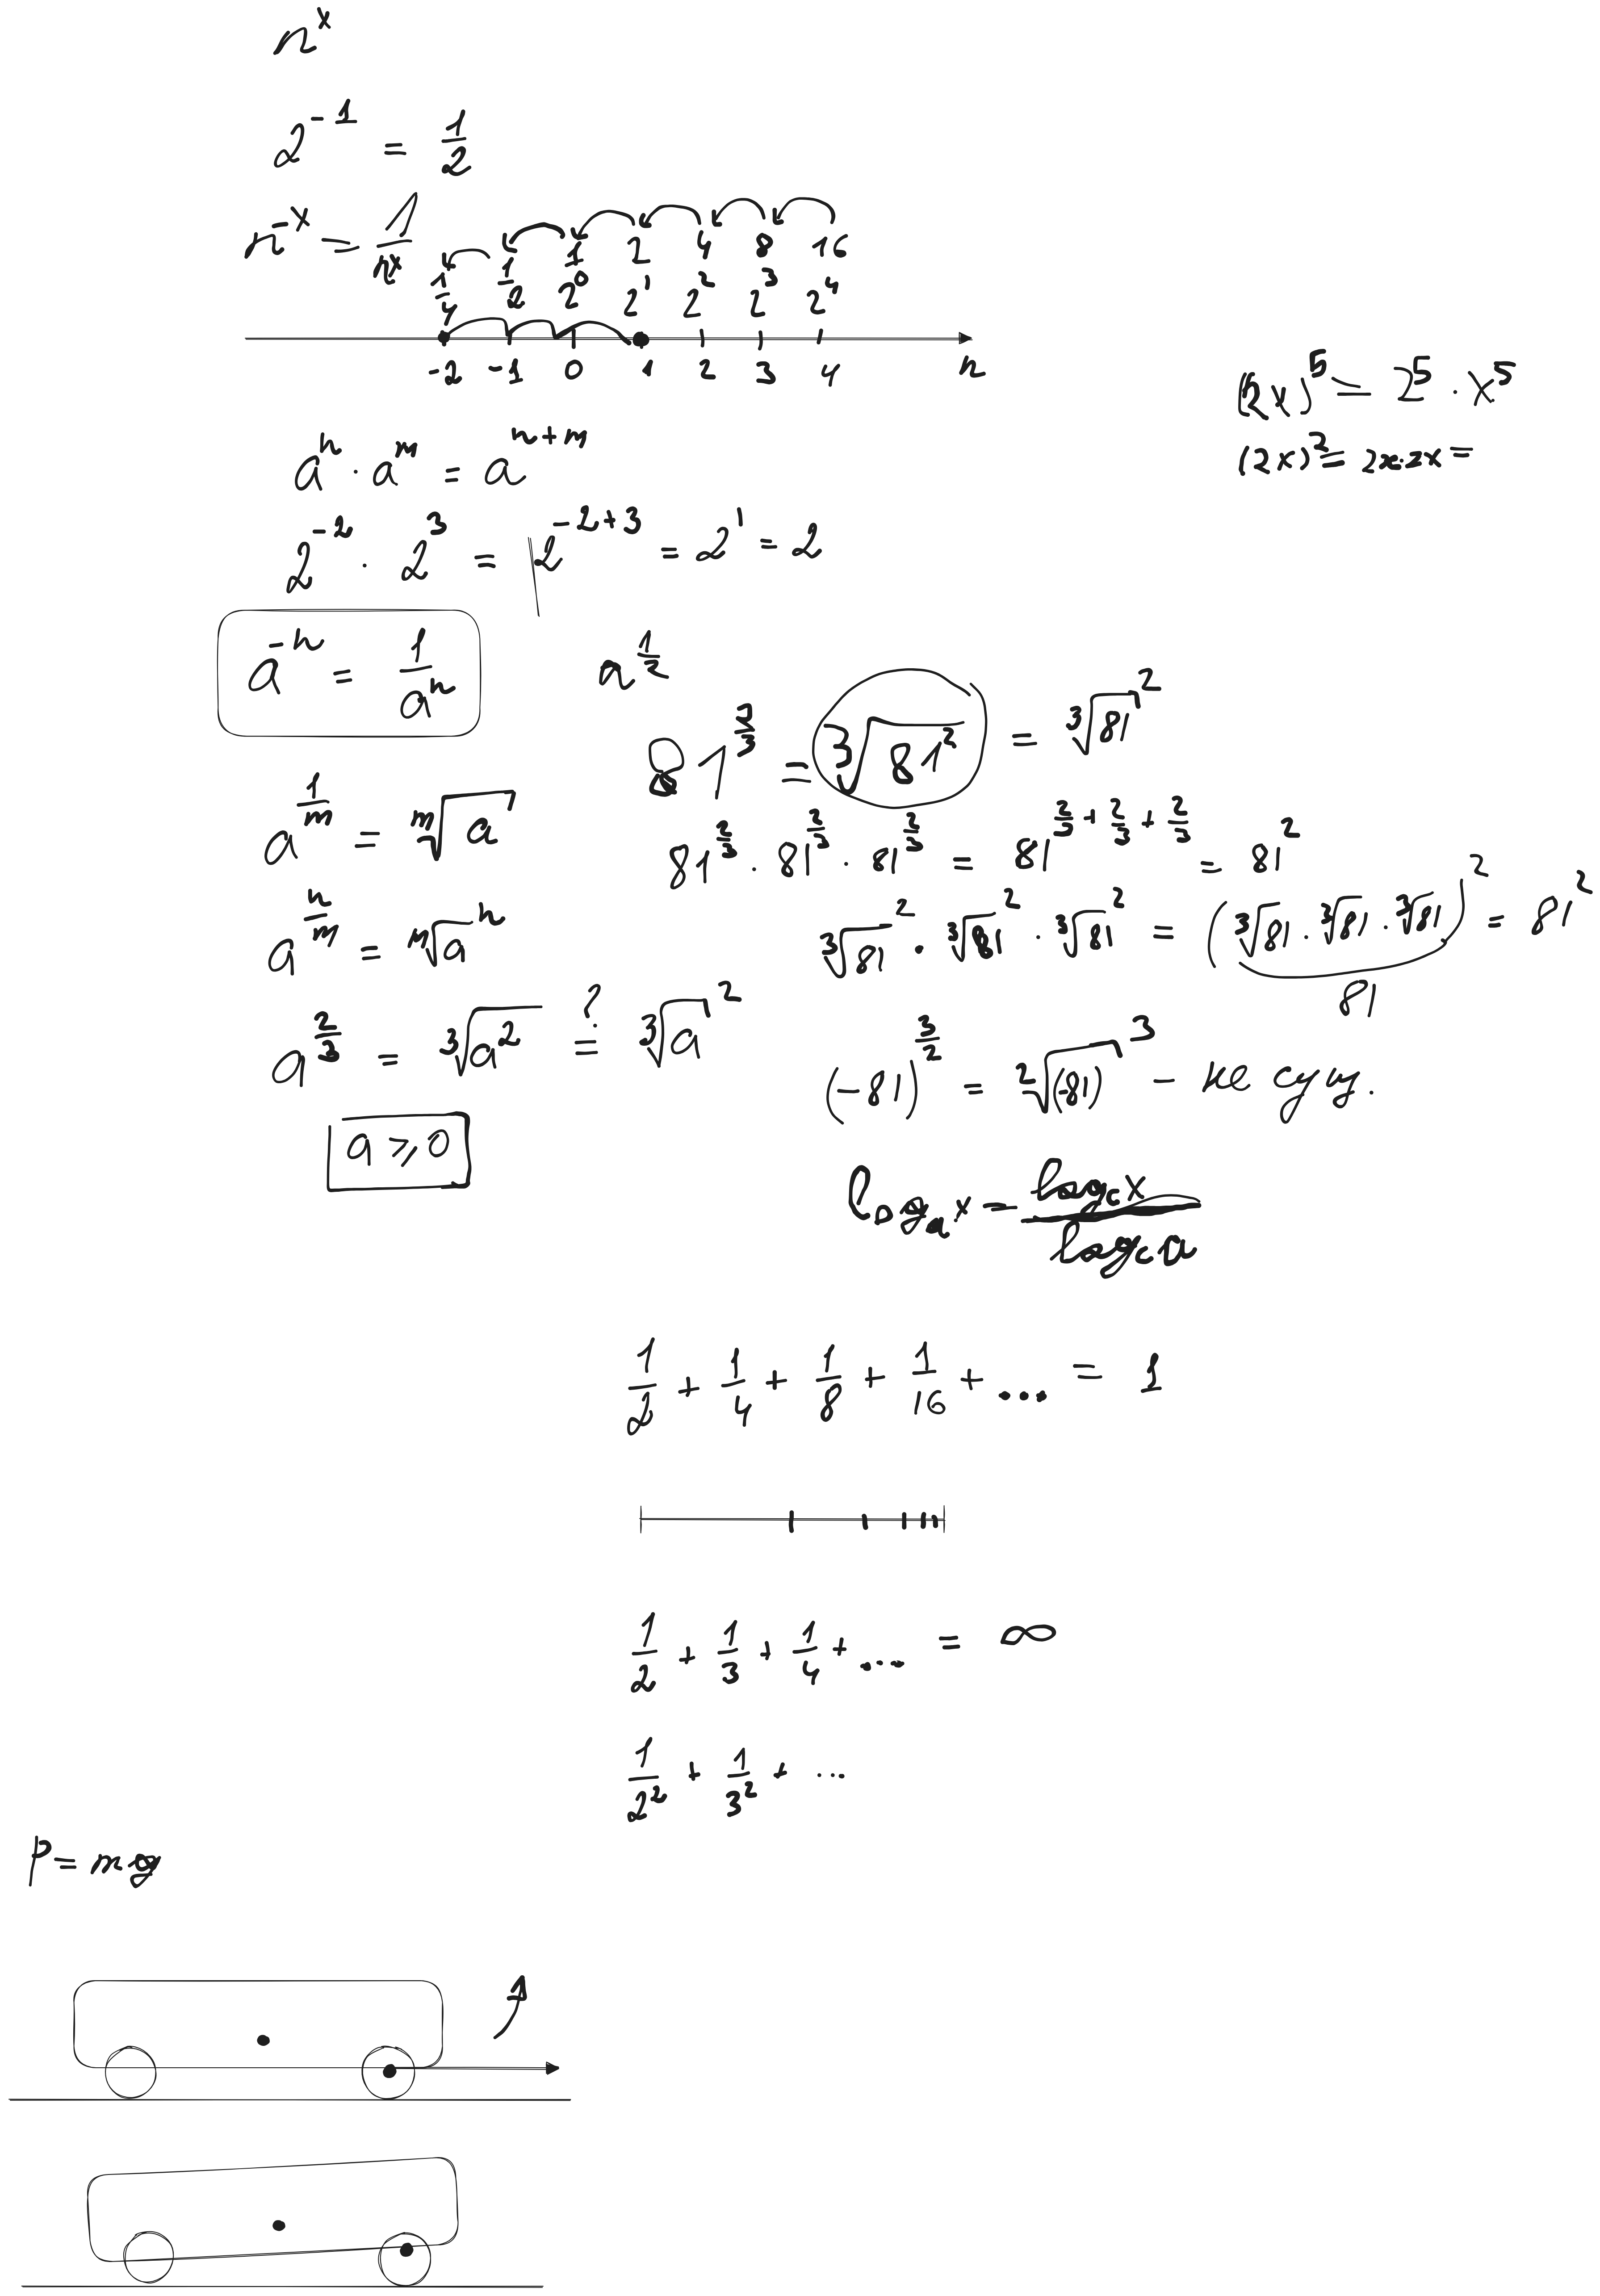 n^x
2^{-1} = 1/2
n^{-x} = 1/n^x
1/4 1/2 1 2 4 8 16
2^0 2^1 2^2 2^3 2^4
-2 -1 0 1 2 3 4 n
(2x)^5 = 2^5 · x^5
(2x)^2 = 2x·2x =
a^n · a^m = a^{n+m}
2^{-2} · 2^3 = 2^{-2+3} = 2^1 = 2
a^{-n} = 1/a^n
a^{1/m} = ᵐ√a
a^{n/m} = ᵐ√a^n
a^{2/3} = ³√(a^2) ?= ³√a^2
a ⩾ 0
n^{1/2}
81^{2/3} = ³√(81^2) = ³√81^2
81^{2/3} · 81^{2/3} · 81^{2/3} = 81^{2/3 + 2/3 + 2/3} = 81^2
³√81^2 · ³√81^2 · ³√81^2 = (³√81 · ³√81 · ³√81)^2 = 81^2
81
(-81)^{3/2} = ²√(-81)^3 - не сущ.
log_a x = log_c x / log_c a
1/2 + 1/4 + 1/8 + 1/16 + ... = 1
1/2 + 1/3 + 1/4 + ... = ∞
1/2^2 + 1/3^2 + ...
P = mg